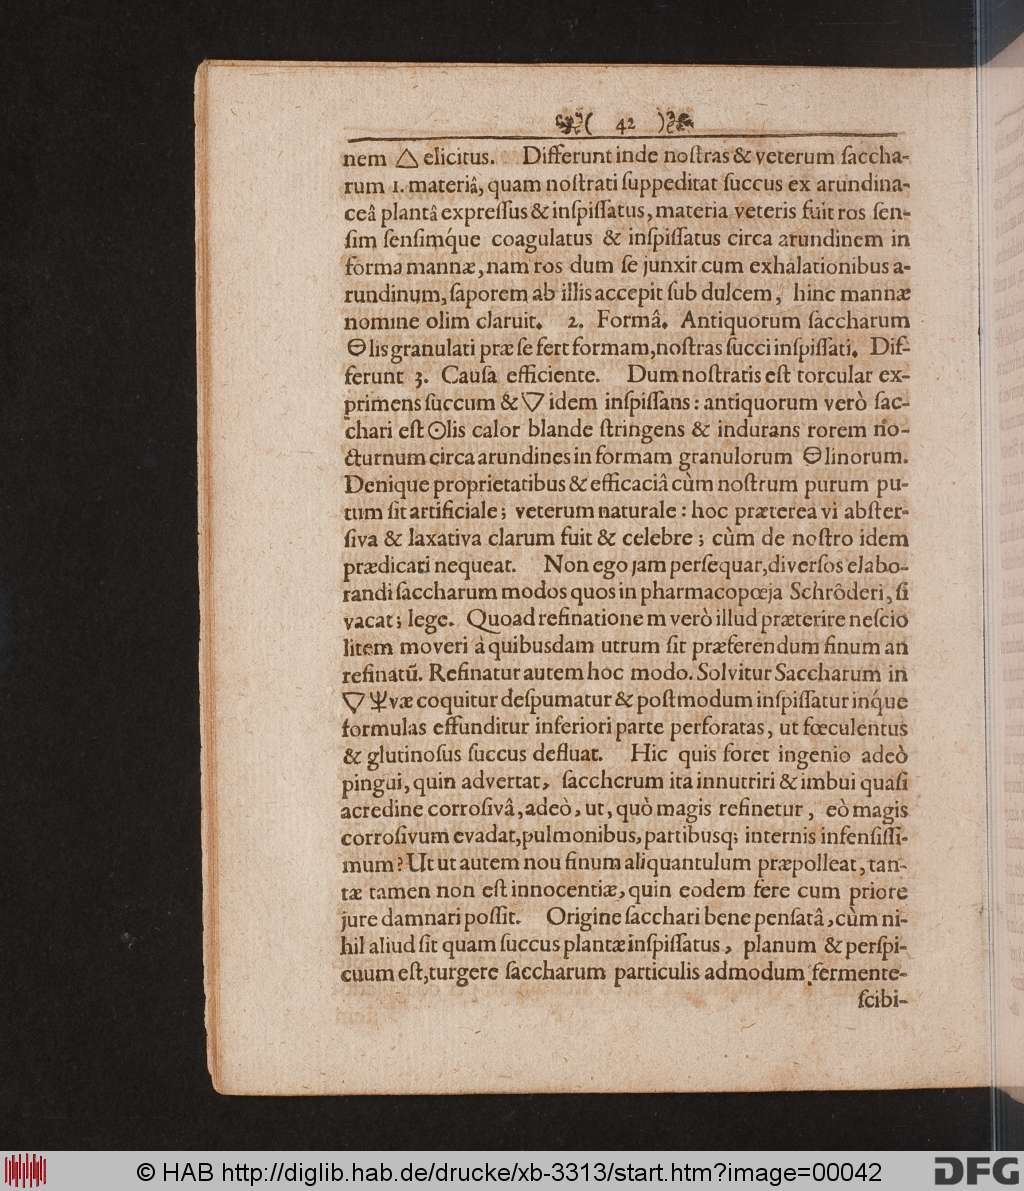 ( 42 )
nem 🜂 elicitus. Differunt inde noſtras & veterum ſaccha-
rum 1. materiâ, quam noſtrati ſuppeditat ſuccus ex arundina-
ceâ plantâ expreſſus & inſpiſſatus, materia veteris fuit ros ſen-
ſim ſenſimq́ue coagulatus & inſpiſſatus circa arundinem in
forma mannæ, nam ros dum ſe junxit cum exhalationibus a-
rundinum, ſaporem ab illis accepit ſub dulcem, hinc mannæ
nomine olim claruit. 2. Formâ. Antiquorum ſaccharum
🜔lis granulati præ ſe fert formam, noſtras ſucci inſpiſſati. Dif-
ferunt 3. Cauſa efficiente. Dum noſtratis eſt torcular ex-
primens ſuccum & 🜄 idem inſpiſſans: antiquorum verò ſac-
chari eſt ☉lis calor blande ſtringens & indurans rorem no-
cturnum circa arundines in formam granulorum 🜔linorum.
Denique proprietatibus & efficaciâ cùm noſtrum purum pu-
tum ſit artificiale; veterum naturale: hoc præterea vi abſter-
ſiva & laxativa clarum fuit & celebre; cùm de noſtro idem
prædicari nequeat. Non ego jam perſequar, diverſos elabo-
randi ſaccharum modos quos in pharmacopœja Schrôderi, ſi
vacat; lege. Quoad refinatione m verò illud præterire neſcio
litem moveri à quibusdam utrum ſit præferendum finum an
refinatũ. Refinatur autem hoc modo. Solvitur Saccharum in
🜄 ♆væ coquitur deſpumatur & poſtmodum inſpiſſatur inq́ue
formulas effunditur inferiori parte perforatas, ut fœculentus
& glutinoſus ſuccus defluat. Hic quis foret ingenio adeò
pingui, quin advertat, ſacchcrum ita innutriri & imbui quaſi
acredine corroſivâ, adeò, ut, quò magis refinetur, eò magis
corroſivum evadat, pulmonibus, partibusq; internis infenſiſſi-
mum? Ut ut autem nou finum aliquantulum præpolleat, tan-
tæ tamen non eſt innocentiæ, quin eodem fere cum priore
jure damnari poſſit. Origine ſacchari bene penſatâ, cùm ni-
hil aliud ſit quam ſuccus plantæ inſpiſſatus, planum & perſpi-
cuum eſt, turgere ſaccharum particulis admodum fermente-
ſcibi-
© HAB http://diglib.hab.de/drucke/xb-3313/start.htm?image=00042
DFG